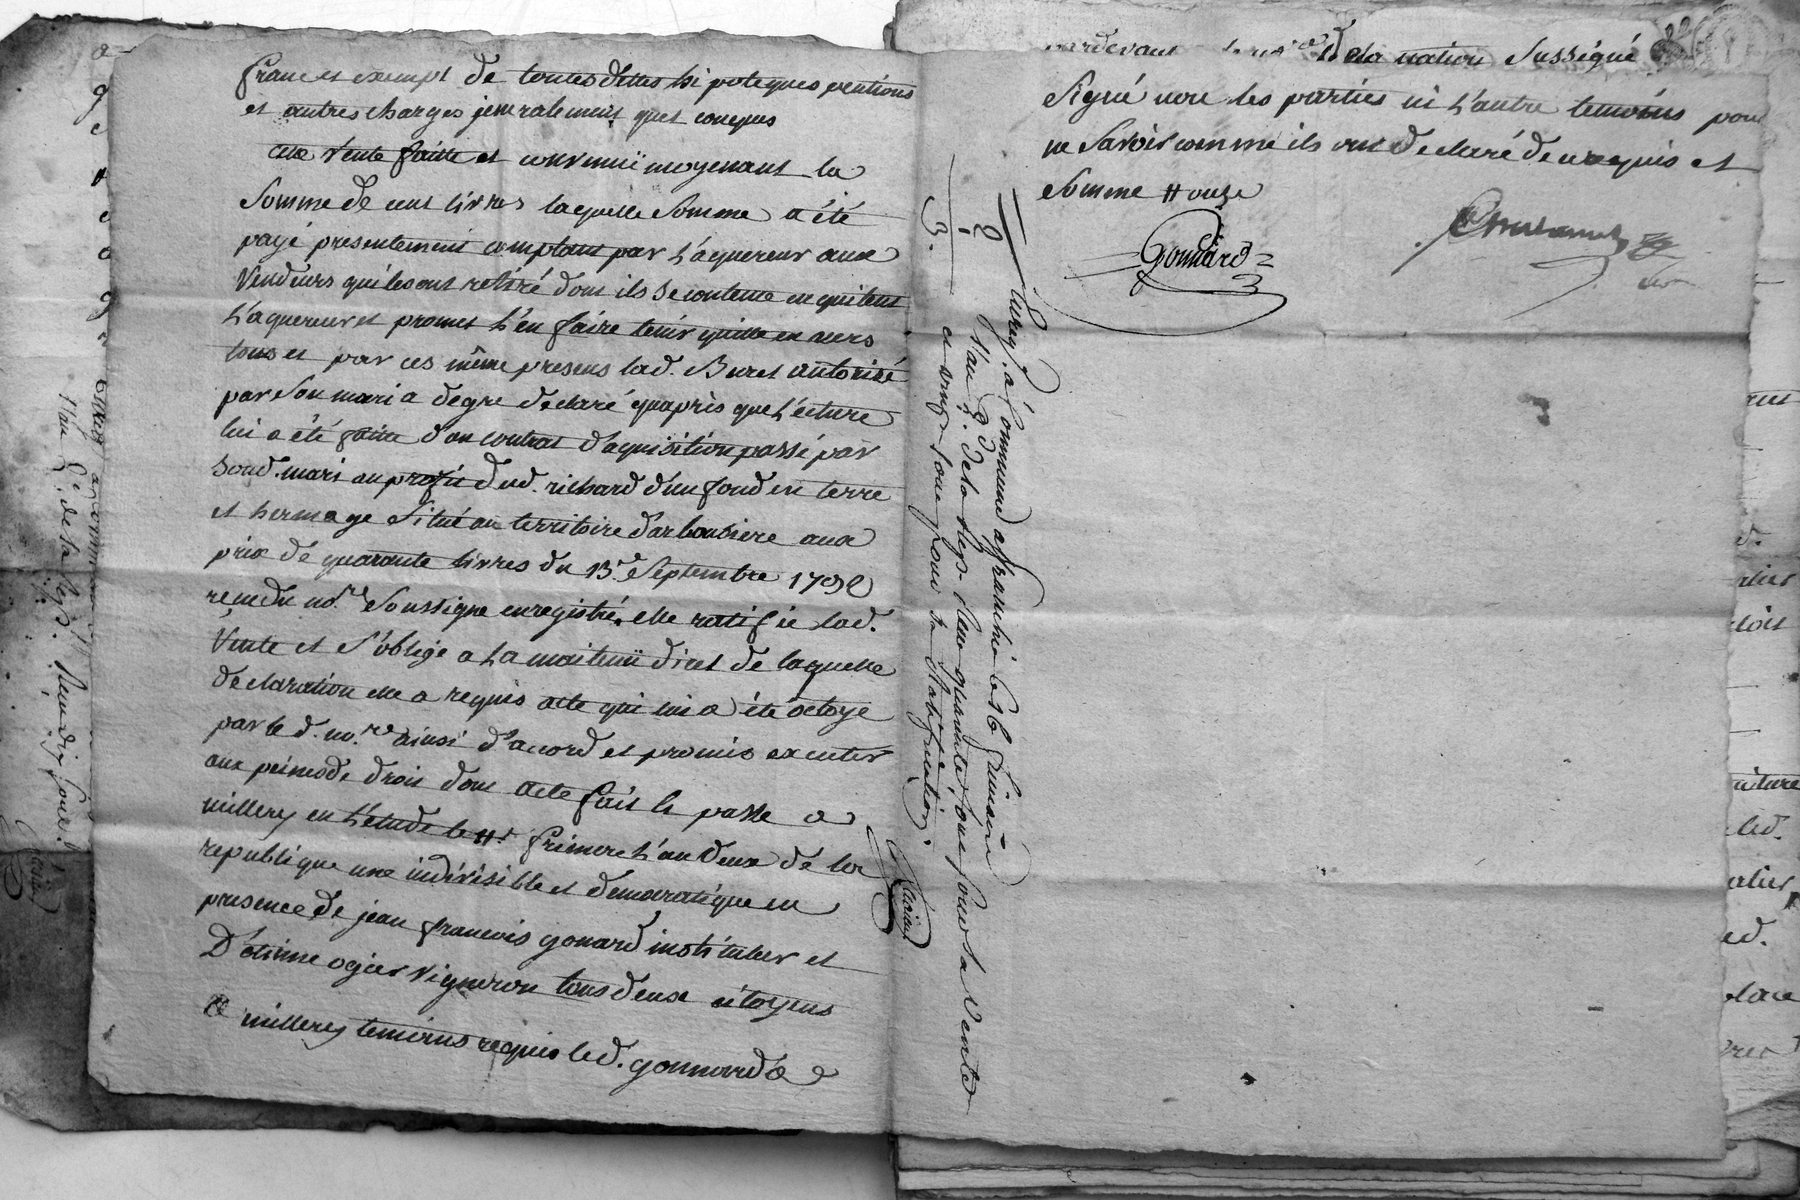 franc et exempt de toutes dettes hipoteques pentions
et autres charges jeneralement quel conques
cete vente faitte et convenuë moyenant la
Somme de cent livres laquelle Somme a été
payé presentement comptant par l'aquereur aux
Vendeurs qui les ont retiré dont ils se contente en quitent
l'aquereur et promet l'en faire tenir quitte en vers
tous et par ces même presens lad. Buret autorisé
par son mari a degre declaré quaprès que lecture
lui a été faitte d'un contrat d'aquisition passé par
Soud. mari au profit dud. richard d'un fond en terre
et hermage Situé au territoire darboussiere aux
prix de quarante livres du 13.e Septembre 1792
recu du no.re Soussigne enregistré, elle ratifie lad.
Vente et S'oblige a la maitenuë dicel de laquelle
declaration elle a requis acte qui lui a été octoyé
par le d. no.re ainsi d'acord et promis executer
aux peines de droit dont acte fait le passé a
millery en l'étude le 11.e frimere l'an deux de la
republique une indivisible et democratique en
presence de jean francois gonard instituteur et
D'étienne ogier Vigneron tous deux citoyens
a millery temoins requis led. gonnard a
pardevant de la nation Sussigné
Signé non les parties ni l'autre temoins pour
ne Savoir comme ils ont declaré de ce requis et
Somme 11 onze
Gonnard
Enreg. a Commune affranchie le 16 frimaire
l'an 2.d de la Rep. Reçu quarante sous pour la Vente
et vingt sous pour la Ratification.
l'an de la Rep. Reçu dix sous